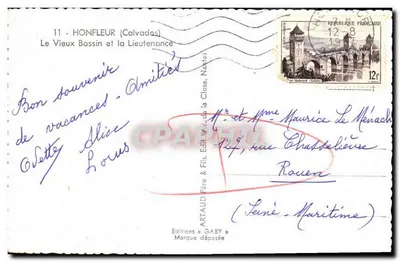 11 - HONFLEUR (Calvados)
Le Vieux Bassin et la Lieutenance
Bon souvenir
de vacances - Amitiés
Odette Alice
Louis
ARTAUD Père & Fils, Edit. de la Close, Nantes
Editions « GABY »
Marque déposée
REPUBLIQUE FRANÇAISE
12 - 8
12F
Mr et Mme Maurice Le Ménach
127, rue Chasselièvre
Rouen
(Seine-Maritime)
CPARAMA